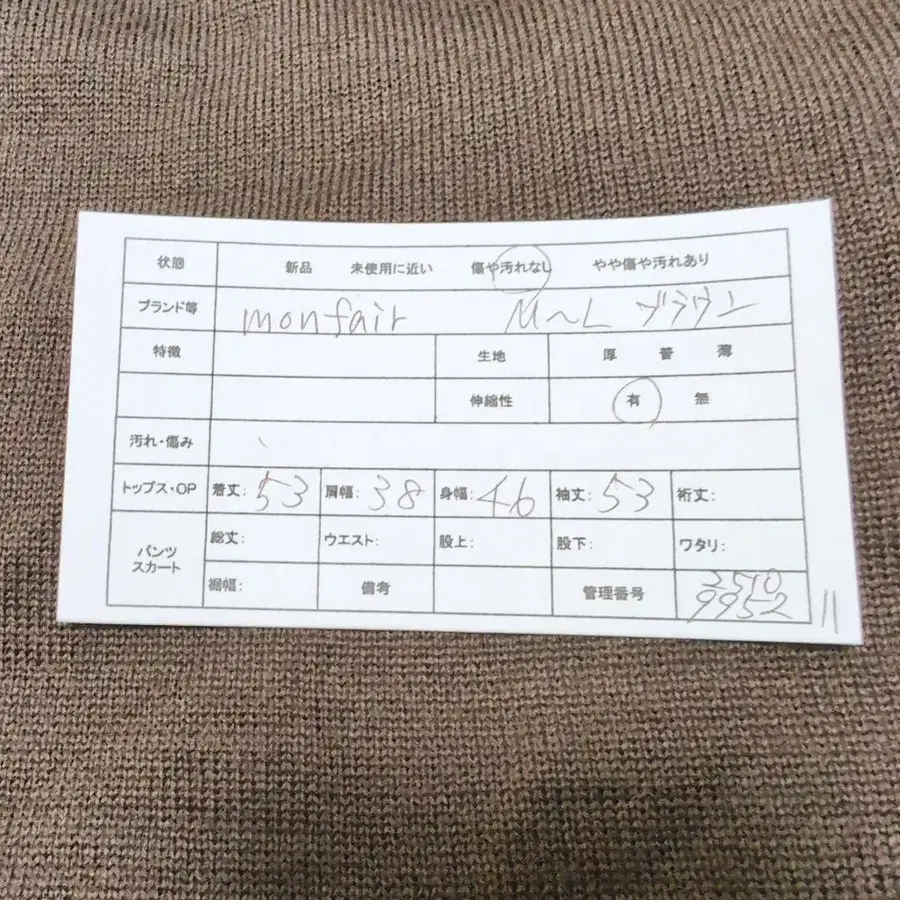 状態 新品 未使用に近い 傷や汚れなし やや傷や汚れあり
ブランド等 monfair M～L ブラウン
特徴 生地 厚 普 薄
伸縮性 有 無
汚れ・傷み
トップス・OP 着丈: 53 肩幅: 38 身幅: 46 袖丈: 53 裄丈:
パンツ スカート 総丈: ウエスト: 股上: 股下: ワタリ:
裾幅: 備考 管理番号 3510
9952 11